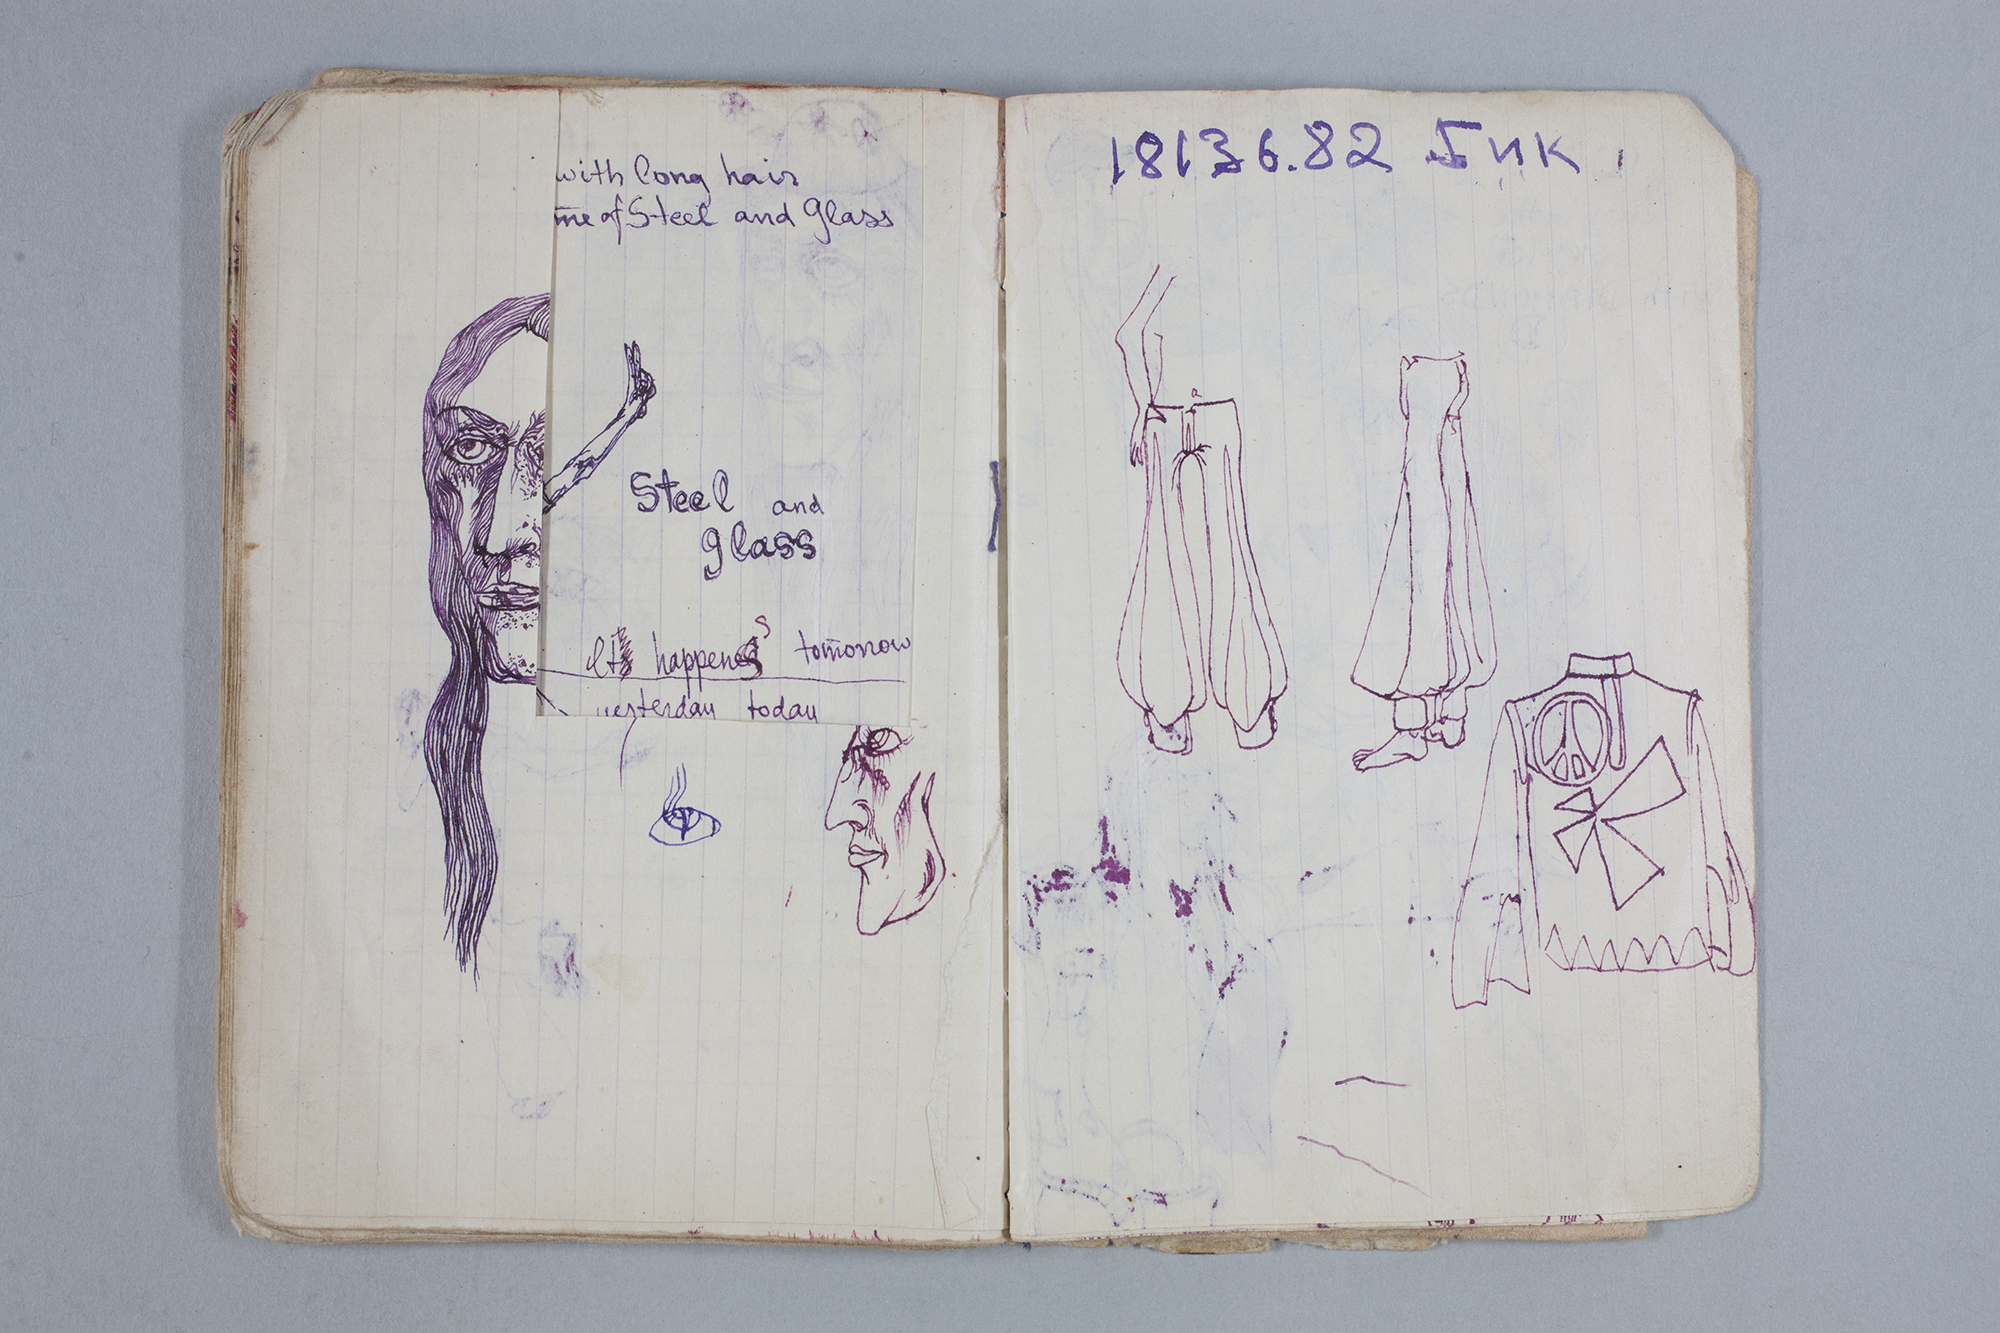 with long hair
me of Steel and Glass
Steel and
glass
It happens tomorrow
yesterday today
18136.82 Бик